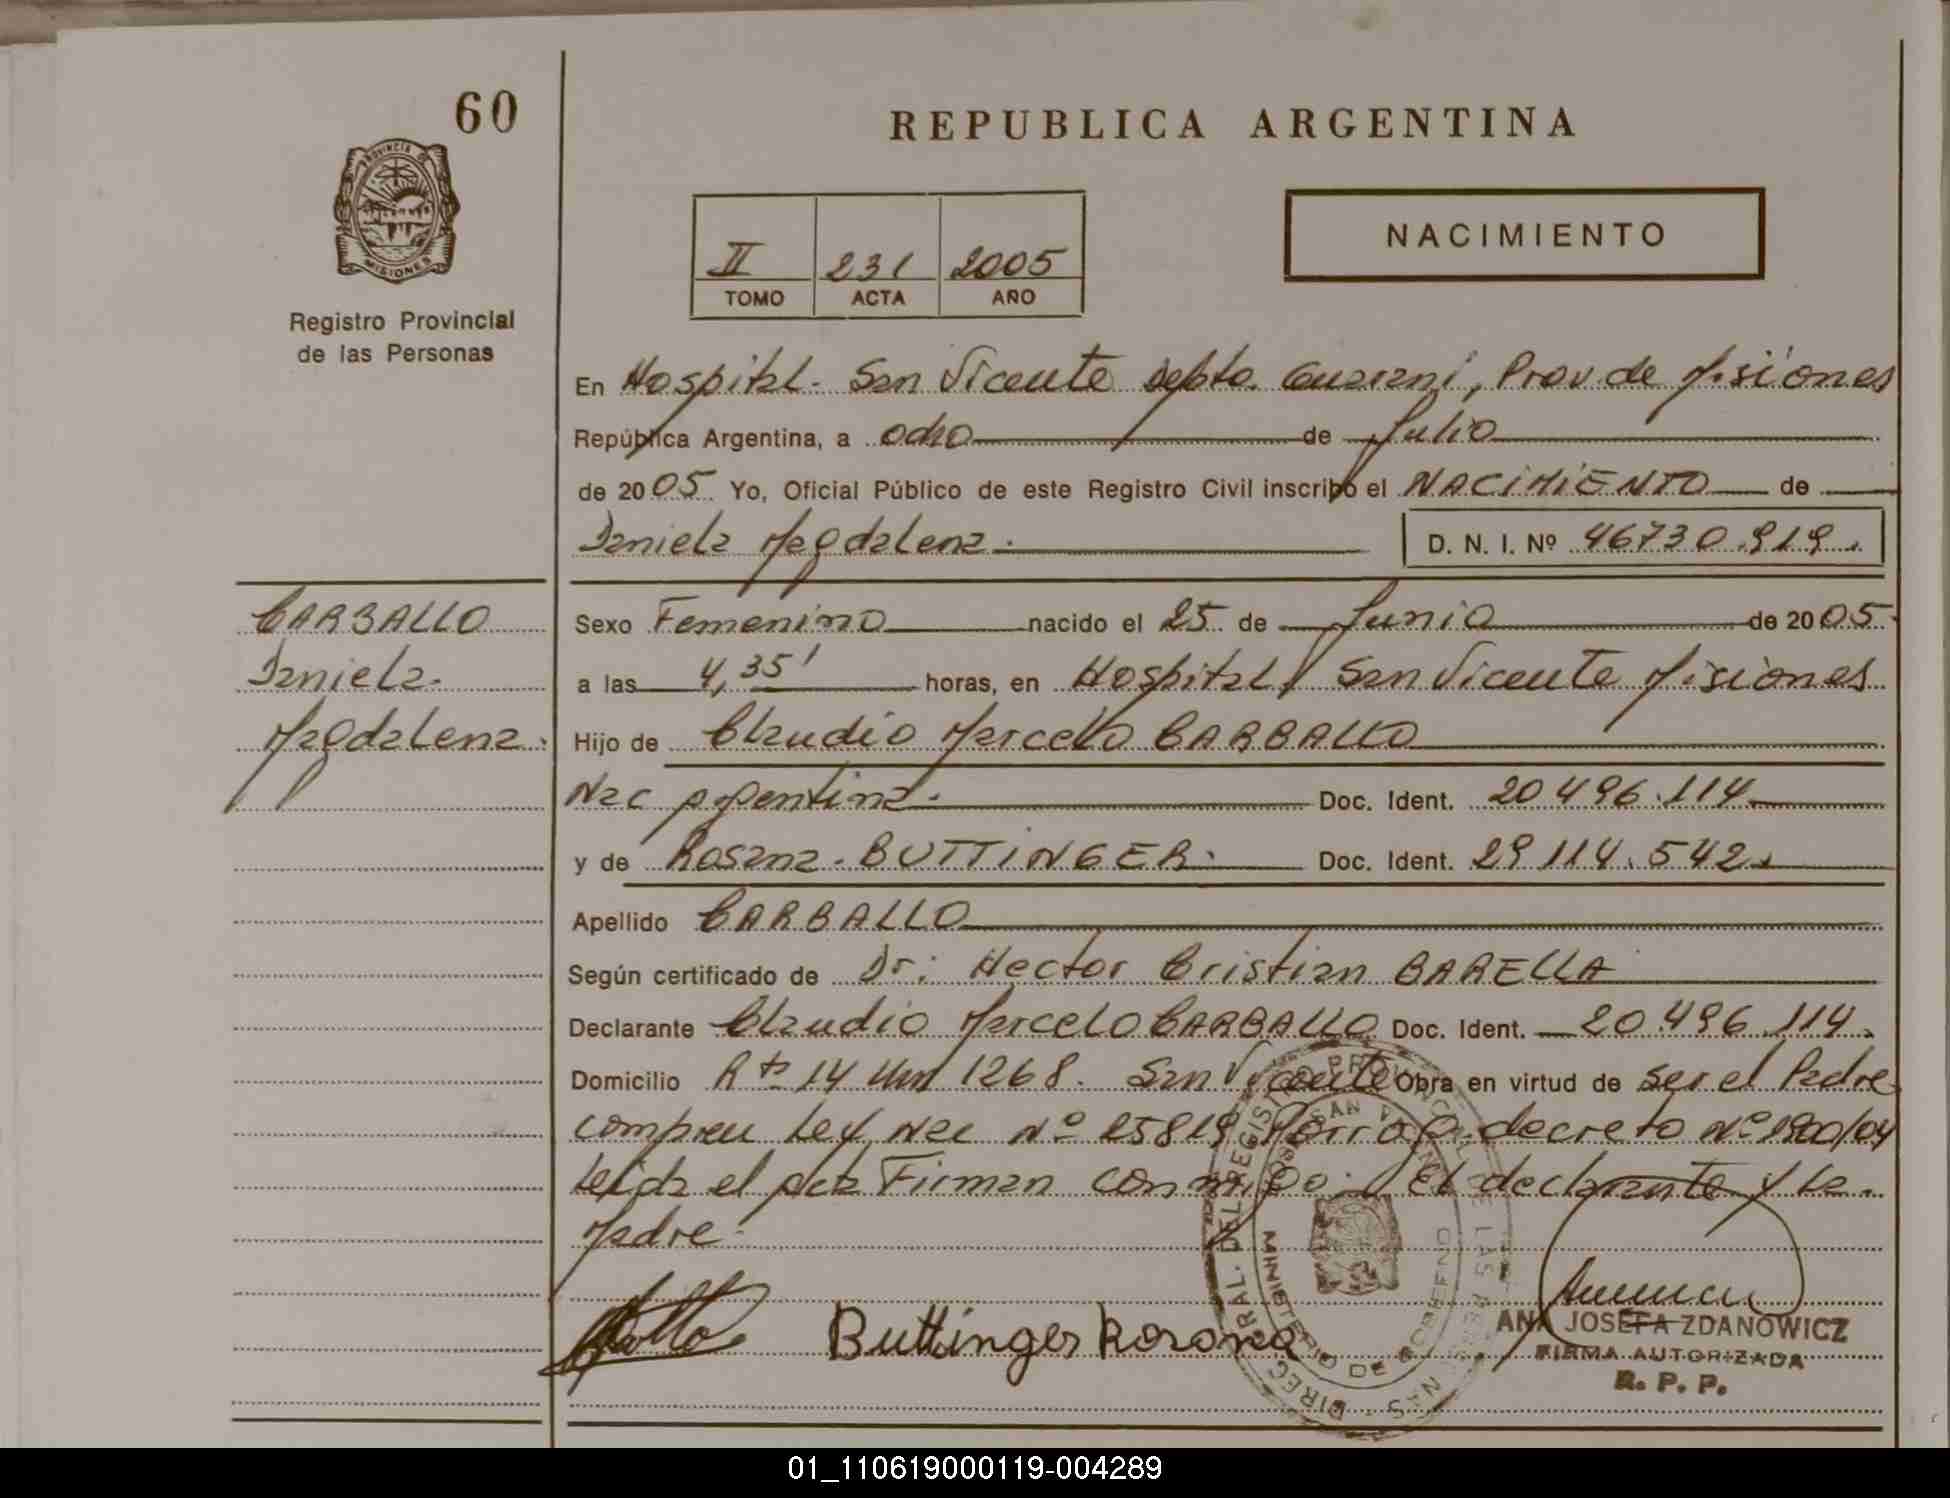 60
REPUBLICA ARGENTINA
PROVINCIA DE
MISIONES
Registro Provincial
de las Personas
II 231 2005
TOMO ACTA AÑO
NACIMIENTO
En Hospital. San Vicente Depto. Guarani, Prov de Misiones
República Argentina, a ocho de Julio
de 2005 Yo, Oficial Público de este Registro Civil inscribo el NACIMIENTO de
Daniela Magdalena. D. N. I. Nº 46730.919.
CARBALLO
Daniela.
Magdalena.
Sexo Femenino nacido el 25 de Junio de 2005.
a las 4,35' horas, en Hospital San Vicente Misiones
Hijo de Claudio Marcelo CARBALLO
Nac Argentina. Doc. Ident. 20496.114
y de Rosana. BUTTINGER. Doc. Ident. 29114.542.
Apellido CARBALLO
Según certificado de Dr: Hector Cristian BARELLA
Declarante Claudio Marcelo CARBALLO Doc. Ident. 20.496.114.
Domicilio Rta 14 Km 1268. San Vicente Obra en virtud de ser el Padre
Ley Nac Nº 25819 decreto Nº 1900/04
Leida el acta Firman conmigo. El declarante y la.
Madre.
Buttinger Rosana
ANA JOSEFA ZDANOWICZ
FIRMA AUTORIZADA
R. P. P.
MINISTERIO DE GOBIERNO
01_110619000119-004289